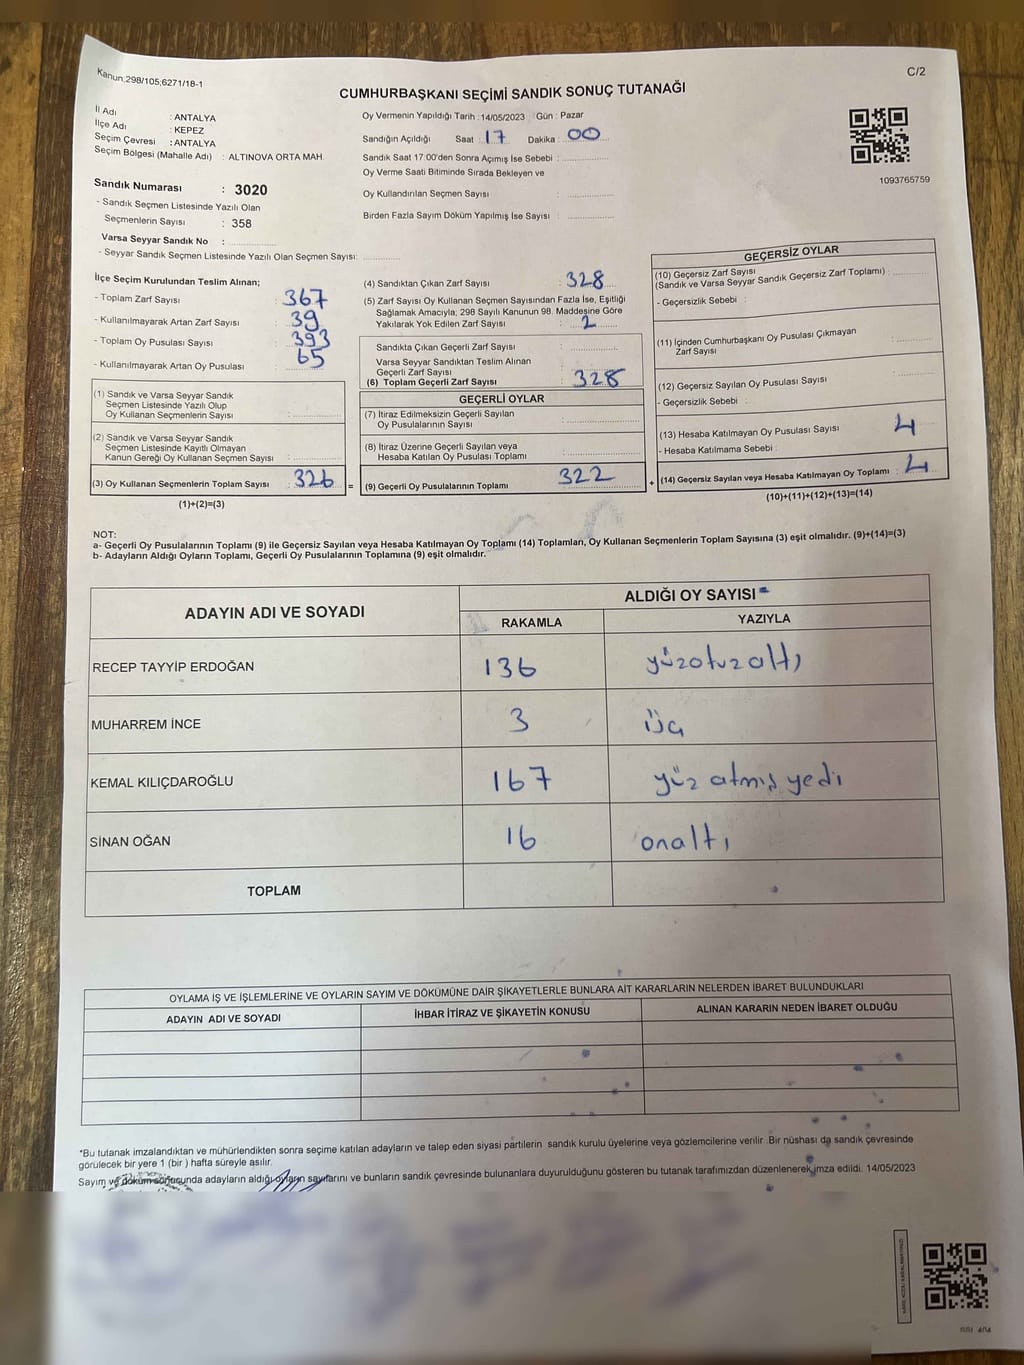 Kanun;298/105,6271/18-1
C/2
CUMHURBAŞKANI SEÇİMİ SANDIK SONUÇ TUTANAĞI
İl Adı : ANTALYA
İlçe Adı : KEPEZ
Seçim Çevresi : ANTALYA
Seçim Bölgesi (Mahalle Adı) : ALTINOVA ORTA MAH.
Sandık Numarası : 3020
- Sandık Seçmen Listesinde Yazılı Olan
Seçmenlerin Sayısı : 358
Varsa Seyyar Sandık No :
- Seyyar Sandık Seçmen Listesinde Yazılı Olan Seçmen Sayısı:
Oy Vermenin Yapıldığı Tarih : 14/05/2023 Gün : Pazar
Sandığın Açıldığı Saat : 17 Dakika : 00
Sandık Saat 17:00'den Sonra Açımış İse Sebebi :
Oy Verme Saati Bitiminde Sırada Bekleyen ve
Oy Kullandırılan Seçmen Sayısı :
Birden Fazla Sayım Döküm Yapılmış İse Sayısı :
1093765759
İlçe Seçim Kurulundan Teslim Alınan;
- Toplam Zarf Sayısı : 367
- Kullanılmayarak Artan Zarf Sayısı : 39
- Toplam Oy Pusulası Sayısı : 393
- Kullanılmayarak Artan Oy Pusulası : 65
(1) Sandık ve Varsa Seyyar Sandık
Seçmen Listesinde Yazılı Olup
Oy Kullanan Seçmenlerin Sayısı :
(2) Sandık ve Varsa Seyyar Sandık
Seçmen Listesinde Kayıtlı Olmayan
Kanun Gereği Oy Kullanan Seçmen Sayısı :
(3) Oy Kullanan Seçmenlerin Toplam Sayısı : 326
(1)+(2)=(3)
=
(4) Sandıktan Çıkan Zarf Sayısı : 328
(5) Zarf Sayısı Oy Kullanan Seçmen Sayısından Fazla İse, Eşitliği
Sağlamak Amacıyla; 298 Sayılı Kanunun 98. Maddesine Göre
Yakılarak Yok Edilen Zarf Sayısı : 2
Sandıkta Çıkan Geçerli Zarf Sayısı :
Varsa Seyyar Sandıktan Teslim Alınan
Geçerli Zarf Sayısı :
(6) Toplam Geçerli Zarf Sayısı : 328
GEÇERLİ OYLAR
(7) İtiraz Edilmeksizin Geçerli Sayılan
Oy Pusulalarının Sayısı :
(8) İtiraz Üzerine Geçerli Sayılan veya
Hesaba Katılan Oy Pusulası Toplamı :
(9) Geçerli Oy Pusulalarının Toplamı : 322
+
GEÇERSİZ OYLAR
(10) Geçersiz Zarf Sayısı
(Sandık ve Varsa Seyyar Sandık Geçersiz Zarf Toplamı) :
- Geçersizlik Sebebi :
(11) İçinden Cumhurbaşkanı Oy Pusulası Çıkmayan
Zarf Sayısı :
(12) Geçersiz Sayılan Oy Pusulası Sayısı :
- Geçersizlik Sebebi :
(13) Hesaba Katılmayan Oy Pusulası Sayısı : 4
- Hesaba Katılmama Sebebi :
(14) Geçersiz Sayılan veya Hesaba Katılmayan Oy Toplamı : 4
(10)+(11)+(12)+(13)=(14)
NOT:
a- Geçerli Oy Pusulalarının Toplamı (9) ile Geçersiz Sayılan veya Hesaba Katılmayan Oy Toplamı (14) Toplamları, Oy Kullanan Seçmenlerin Toplam Sayısına (3) eşit olmalıdır. (9)+(14)=(3)
b- Adayların Aldığı Oyların Toplamı, Geçerli Oy Pusulalarının Toplamına (9) eşit olmalıdır.
ADAYIN ADI VE SOYADI
ALDIĞI OY SAYISI
RAKAMLA YAZIYLA
RECEP TAYYİP ERDOĞAN 136 yüzotuzaltı
MUHARREM İNCE 3 üç
KEMAL KILIÇDAROĞLU 167 yüz atmış yedi
SİNAN OĞAN 16 onaltı
TOPLAM
OYLAMA İŞ VE İŞLEMLERİNE VE OYLARIN SAYIM VE DÖKÜMÜNE DAİR ŞİKAYETLERLE BUNLARA AİT KARARLARIN NELERDEN İBARET BULUNDUKLARI
ADAYIN ADI VE SOYADI İHBAR İTİRAZ VE ŞİKAYETİN KONUSU ALINAN KARARIN NEDEN İBARET OLDUĞU
*Bu tutanak imzalandıktan ve mühürlendikten sonra seçime katılan adayların ve talep eden siyasi partilerin sandık kurulu üyelerine veya gözlemcilerine verilir. Bir nüshası da sandık çevresinde
görülecek bir yere 1 (bir ) hafta süreyle asılır.
Sayım ve döküm sonucunda adayların aldığı oyların sayılarını ve bunların sandık çevresinde bulunanlara duyurulduğunu gösteren bu tutanak tarafımızdan düzenlenerek imza edildi. 14/05/2023